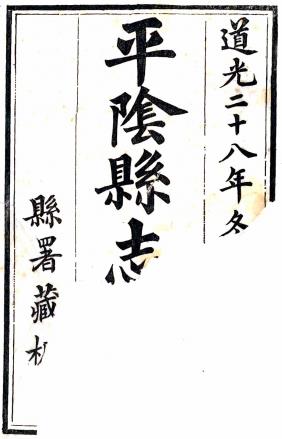 道光二十八年冬
平陰縣志
縣署藏